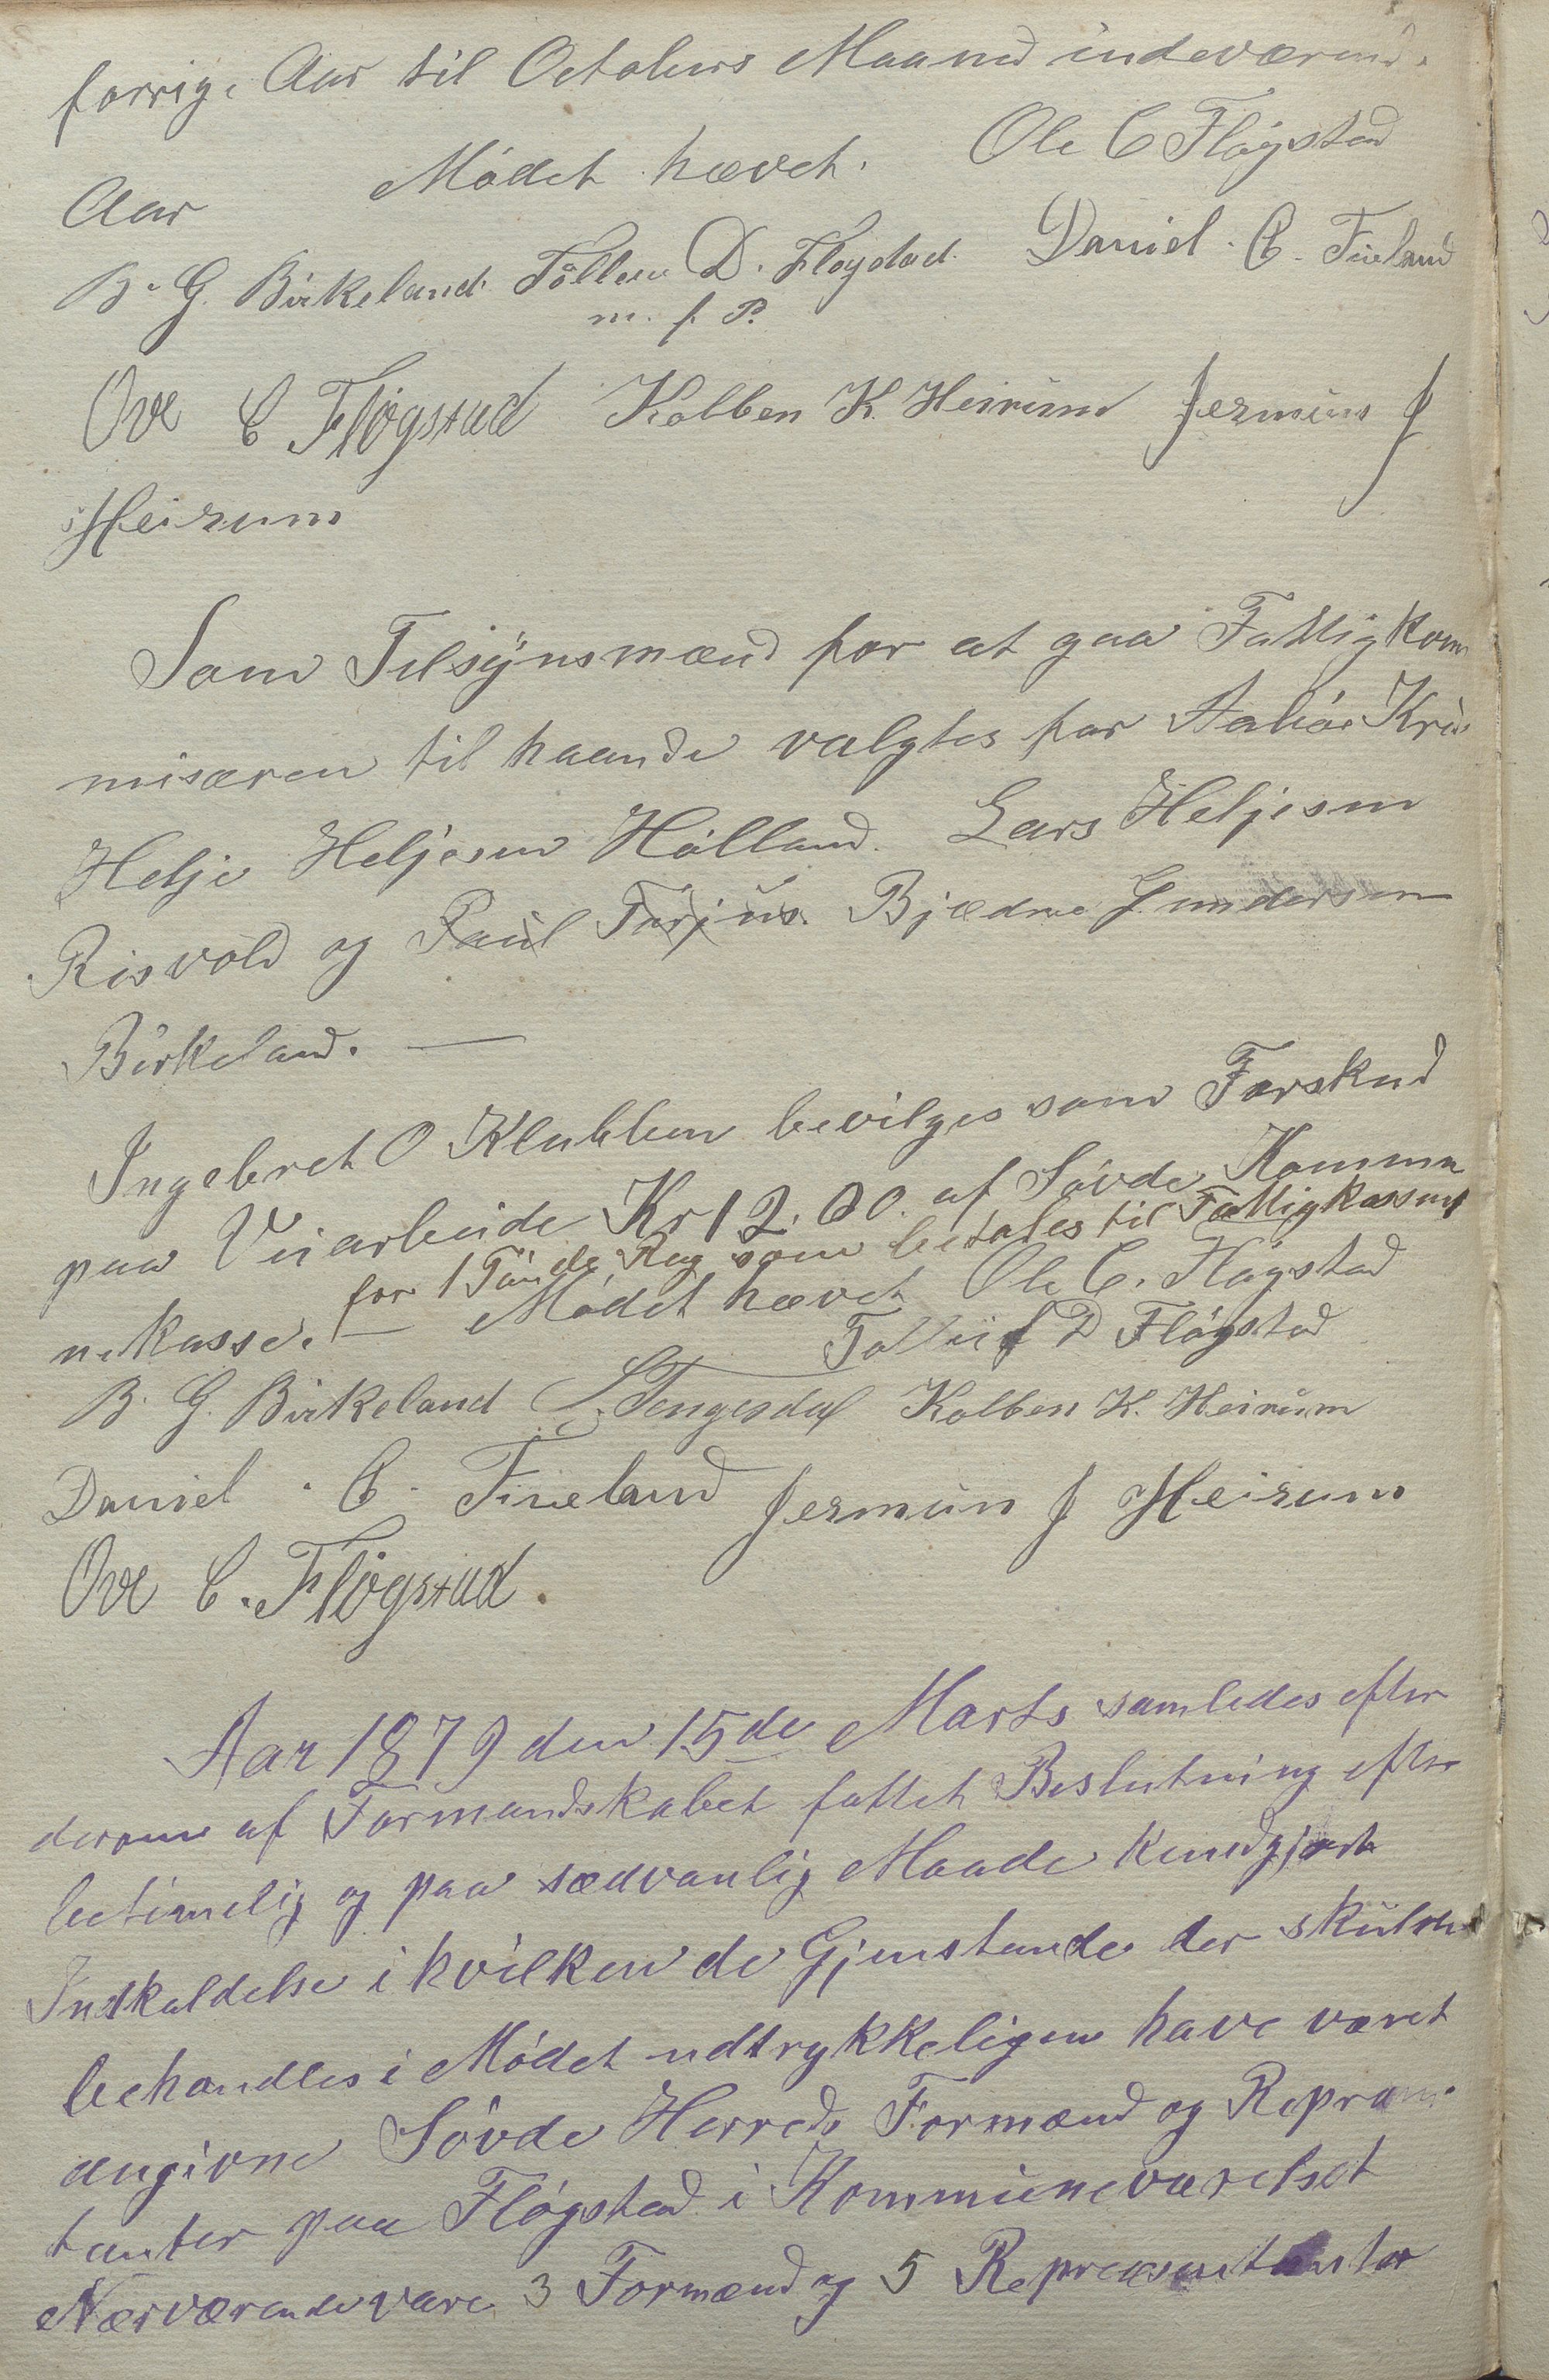 forrige Aar til Octobers Maaned indeværende
Aar Mödet hævet. Ole C Flögstad
B. G. Birkeland Tölleu D. Flogstad. Daniel. C. Fineland
m. f. P.
Ove C Flögstad Kolben K. Heirum Jermun J
Heirum
Som Tilsynsmænd for at gaa Fattigkom
misæren til haande valgtes for Aabøe Kreds
Helje Heljesen Hölland. Lars Heljesen
Risvold og Paul Torjus. Bjædne Gundersen
Birkeland. —
Ingebret O Klubben bevilges som Forskud
paa Veiarbeide Kr 12.00. af Søvde Kommu
for 1 Tønde Rug som betales til Fattigkassen
nekasse. — Mödet hævet Ole C. Flögstad
Tolleif D Flögstad
B. G. Birkeland S. Tengesdal Kolben K. Heirum
Daniel. C. Fineland Jermun J Heirum
Ove C. Flögstad.
Aar 1879 den 15de Marts samledes efter
derom af Formandskabet fattet Beslutning efter
betimelig og paa sædvanlig Maade kundgjort
Indkaldelse i hvilken de Gjenstande der skulde
behandles i Mödet udtrykkeligen have været
angivne Sövde Herreds Formænd og Repræsen
tanter paa Flögstad i Kommuneværelset
Nærværende vare 3 Formænd og 5 Repræsentanter